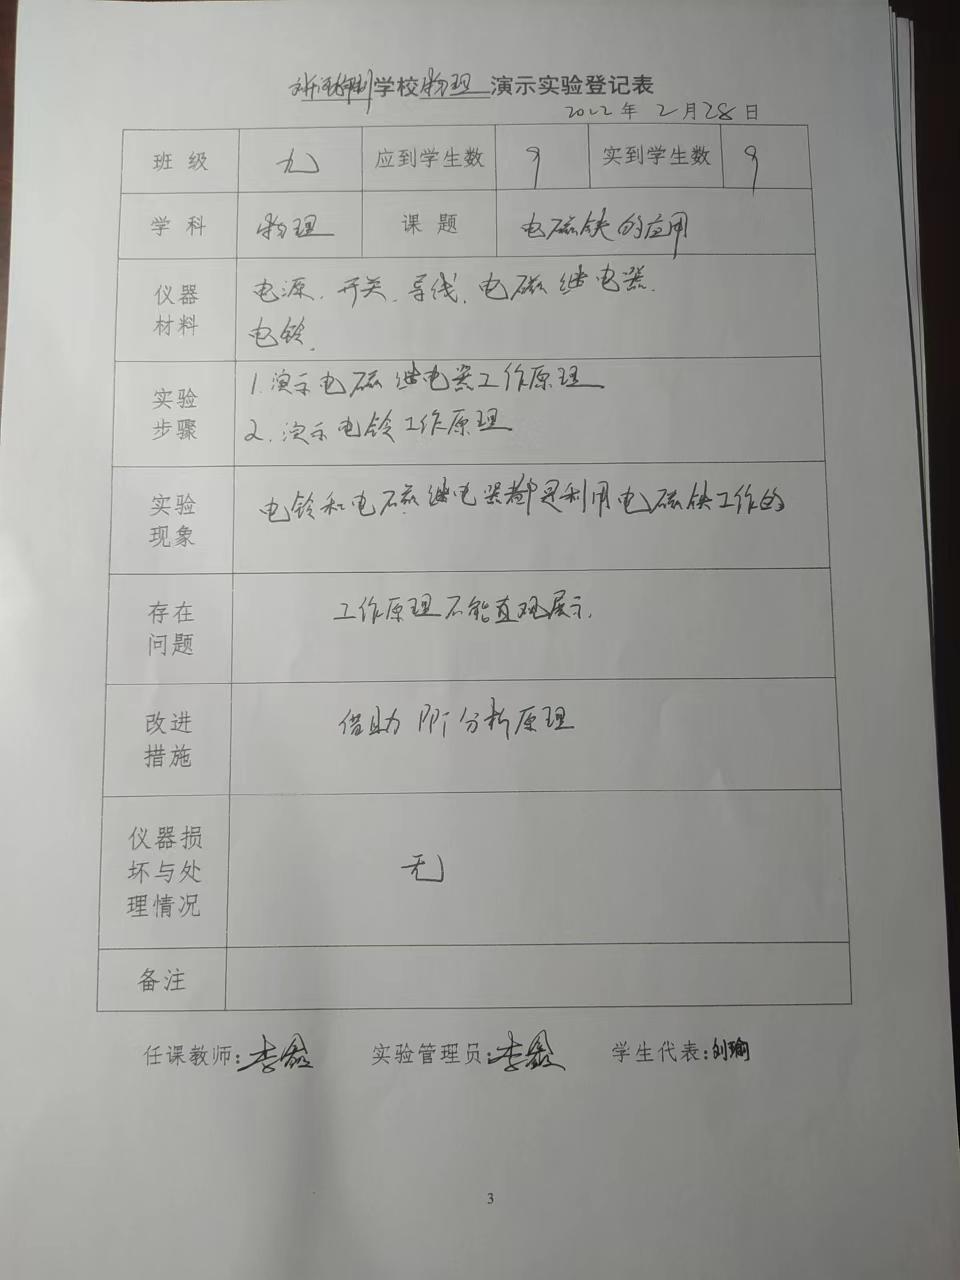 学校物理 演示实验登记表
2022年 2月28日
班级 九 应到学生数 9 实到学生数 9
学科 物理 课题 电磁铁的应用
仪器材料 电源.开关.导线.电磁继电器.
电铃.
实验步骤 1.演示电磁继电器工作原理
2.演示电铃工作原理
实验现象 电铃和电磁继电器都是利用电磁铁工作的
存在问题 工作原理不能直观展示.
改进措施 借助PPT分析原理
仪器损坏与处理情况 无
备注
任课教师:李鑫 实验管理员:李鑫 学生代表:刘瑜
3